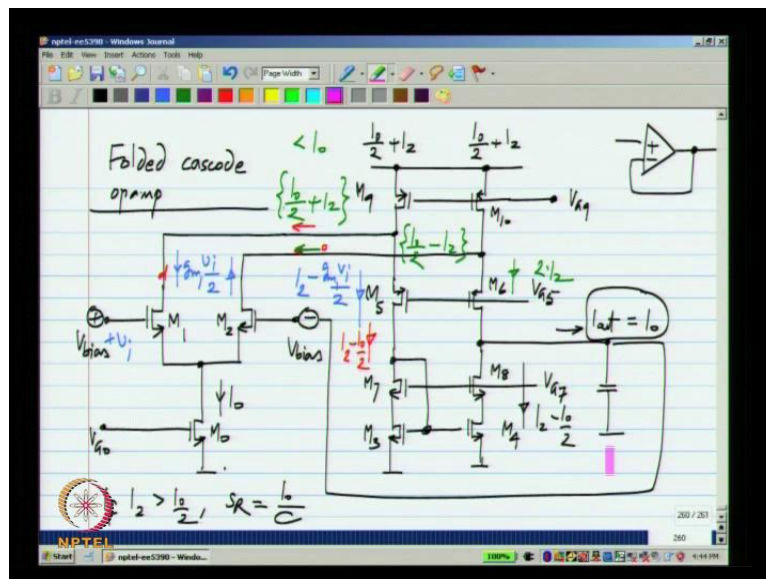 nptel-ee5390 - Windows Journal
File Edit View Insert Actions Tools Help
Page Width
Folded cascode
opamp
< I₀
I₀/2 + I₂
I₀/2 + I₂
{I₀/2 + I₂}
M9
M10
VG9
{I₀/2 - I₂}
gm vi/2
I₂ - gm vi/2
2I₂
M5
M6
VG5
M1
M2
Vbias + vi
Vbias
I₂ - I₀/2
Iout = I₀
I₀
M7
M8
VG7
VG0
M0
M3
M4
I₂ - I₀/2
I₂ > I₀/2, SR = I₀/C
NPTEL
260 / 261
260
Start
nptel-ee5390 - Windo...
100%
4:44 PM